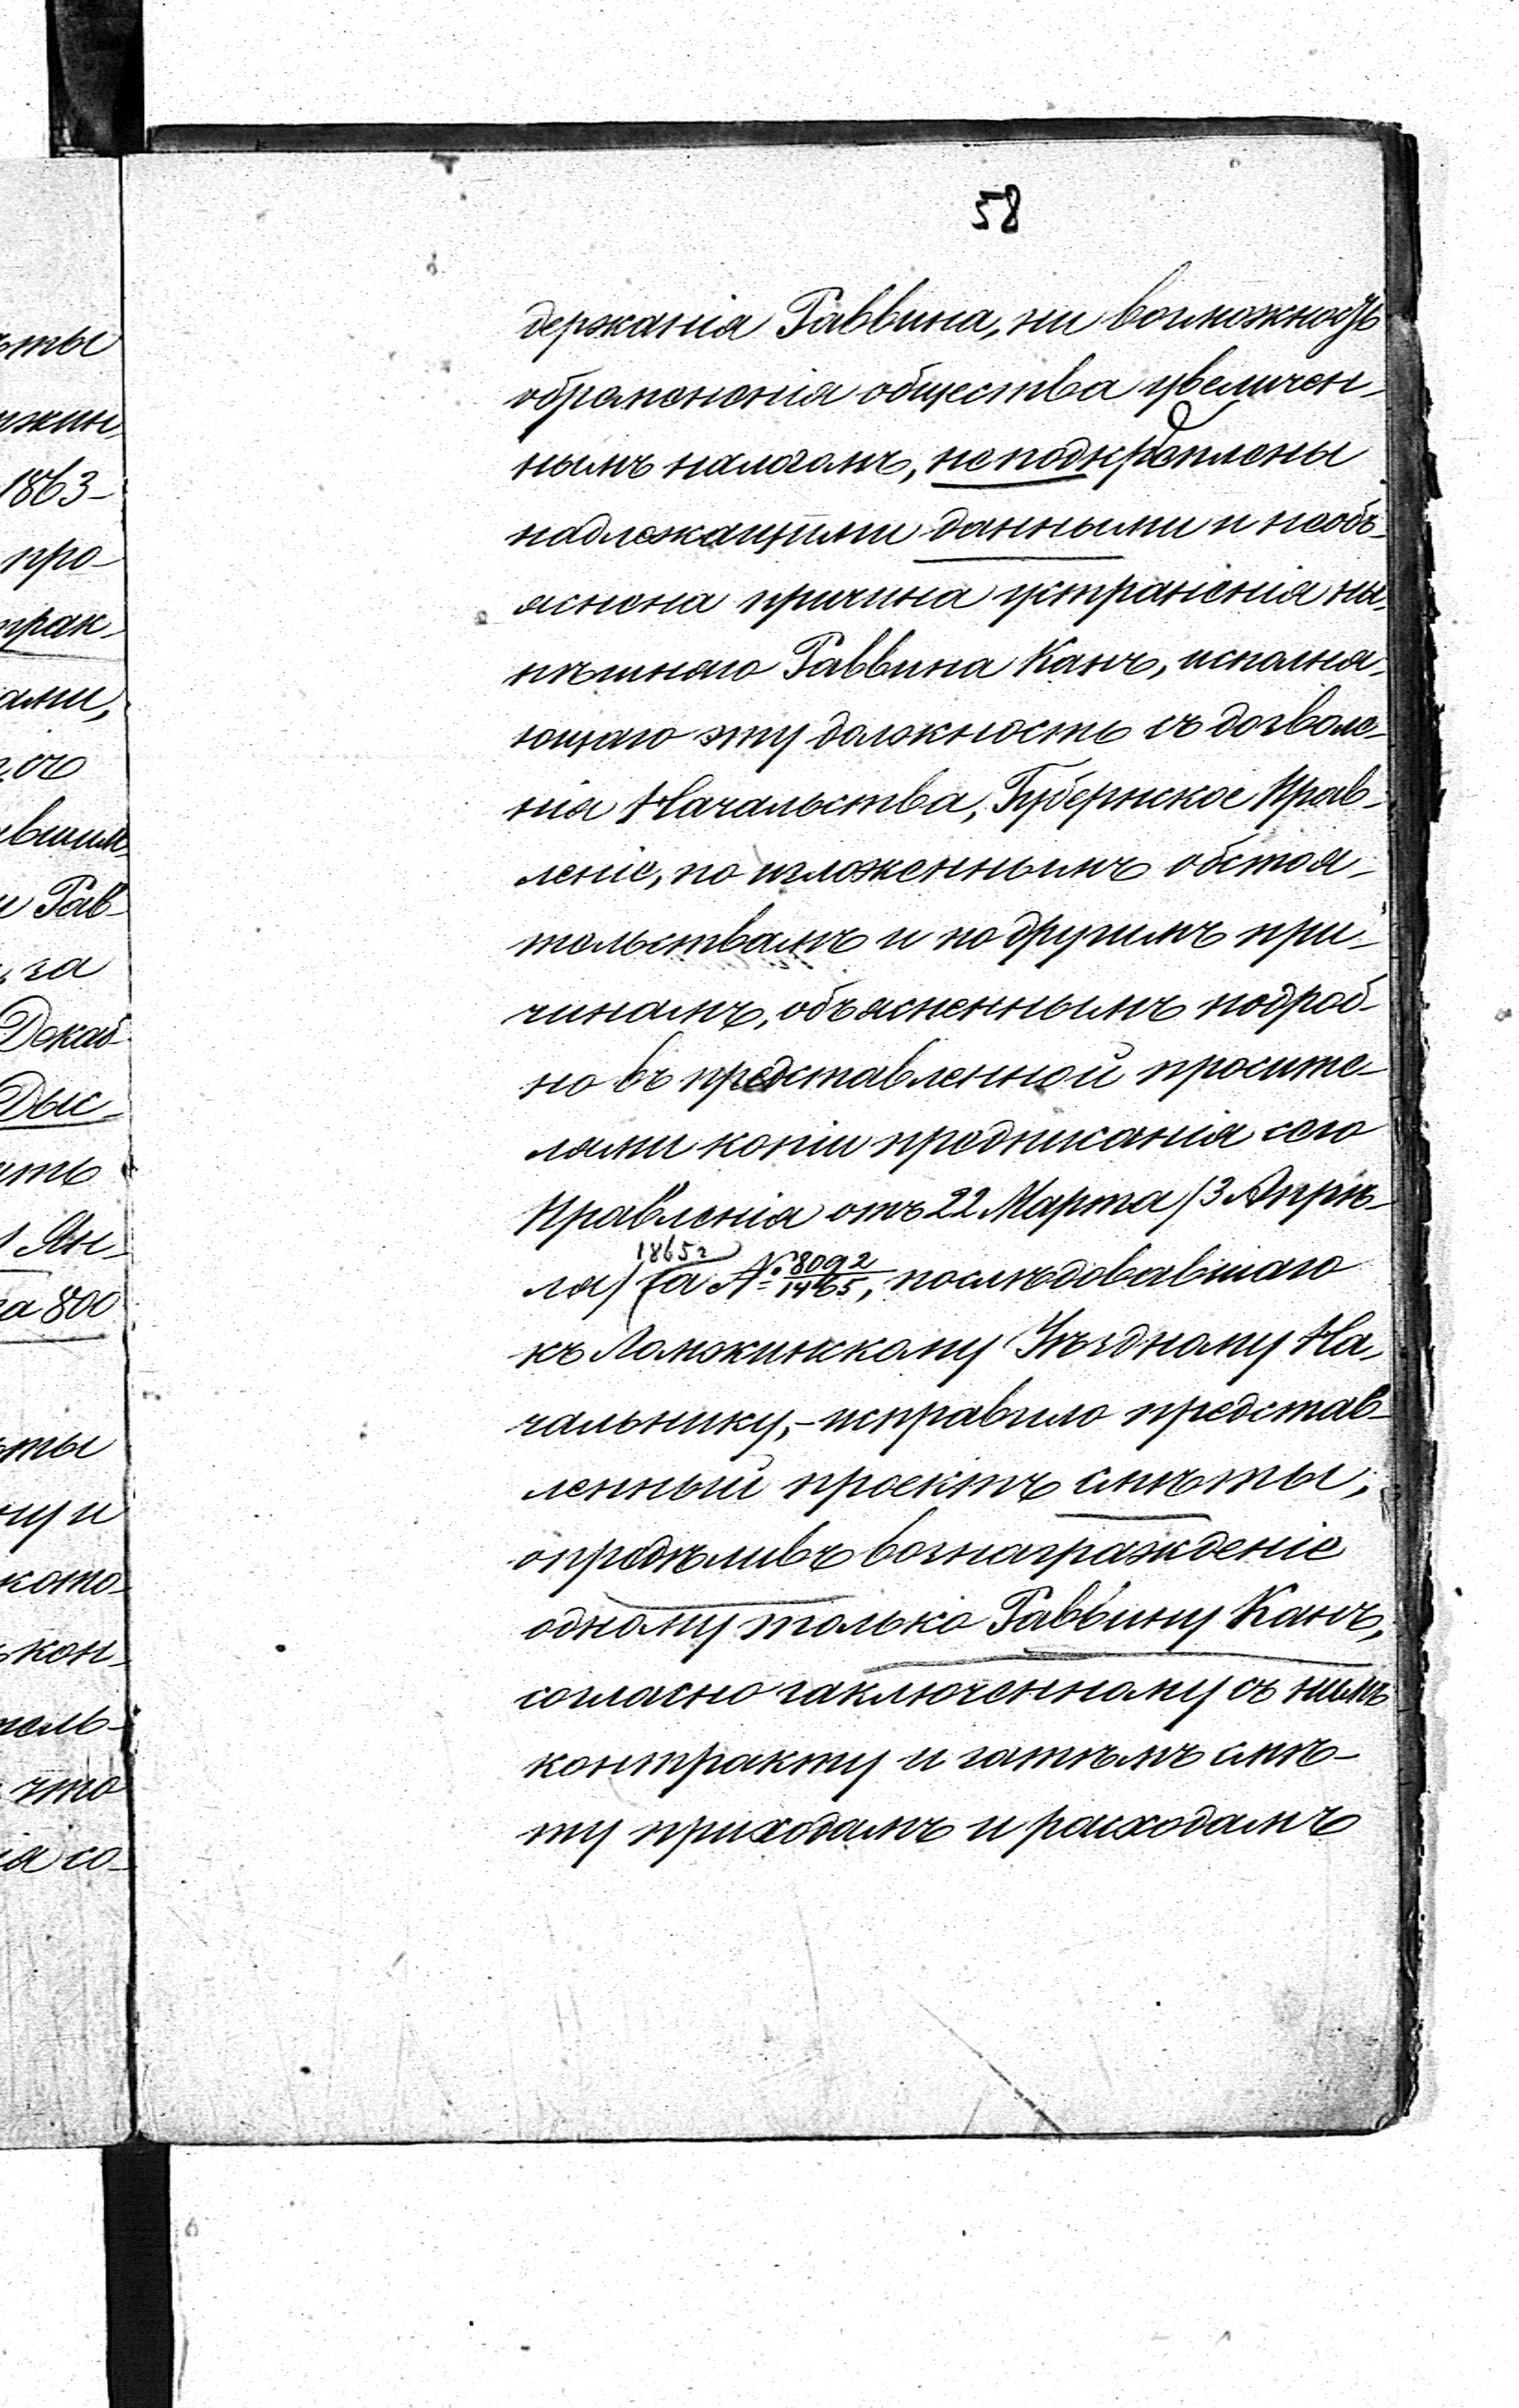 58
держанія Раввина, ни возможность
обремененія общества увеличен-
нымъ налогомъ, не подкрѣплены
надлежащими данными и необъ-
яснена причина устраненія ны-
нѣшняго Раввина Канъ, исполня-
ющаго эту должность съ дозволе-
нія Начальства, Губернское Прав-
леніе, по изложеннымъ обстоя-
тельствамъ и по другимъ при-
чинамъ, объясненнымъ подроб-
но въ представленной просите-
лями копіи предписанія сего
Правленія отъ 22 Марта /3 Апрѣ-
ля/ 1865 г за № 8092/1465, послѣдовавшаго
къ Ломжинскому Уѣздному На-
чальнику, - исправило представ-
ленный проектъ смѣты,
опредѣливъ вознагражденіе
одному только Раввину Канъ,
согласно заключенному съ нимъ
контракту и затѣмъ смѣ-
ту приходамъ и расходамъ
ѣты
1863-
про-
трак-
ами,
Рав-
за
Декаб-
Дыс-
ять
1 Ян-
за 800
ѣты
кото-
кон-
что
ія со-